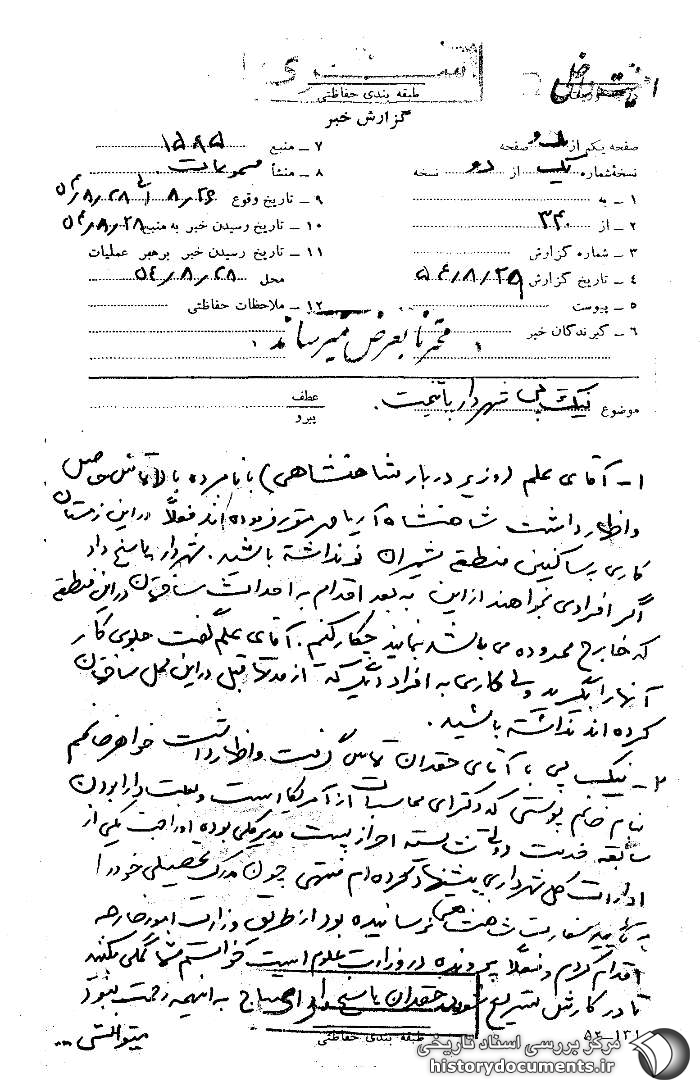 سری
طبقه بندی حفاظتی
گزارش خبر
صفحه یکم از دو صفحه
نسخه شماره یک از دو نسخه
۱ - به
۲ - از ۳۴۰
۳ - شماره گزارش
۴ - تاریخ گزارش ۵۴/۸/۲۹
۵ - پیوست
۶ - گیرندگان خبر
۷ - منبع ۱۵۹۵
۸ - منشأ مسموعات
۹ - تاریخ وقوع ۸/۲۶ الی ۵۴/۸/۲۸
۱۰ - تاریخ رسیدن خبر به منبع ۵۴/۸/۲۸
۱۱ - تاریخ رسیدن خبر برهبر عملیات
محل ۵۴/۸/۲۸
۱۲ - ملاحظات حفاظتی
محترمانا بعرض میرساند
موضوع نیک پی شهردار پایتخت
عطف
پیرو
۱- آقای علم (وزیر دربار شاهنشاهی) با نامبرده بالا تماس حاصل
و اظهار داشت شاهنشاه آریامهر مقرر فرموده اند فعلاً در این زمستان
کاری به ساکنین منطقه شمیران نو نداشته باشید. شهردار پاسخ داد
اگر افرادی بخواهند از این به بعد اقدام به احداث ساختمان در این منطقه
که خارج محدوده می باشد نمایند چکار کنم. آقای علم گفت جلوی کار
آنها را بگیرید ولی کاری به افرادیکه از مدتها قبل در این محل ساختمان
کرده اند نداشته باشید.
۲- نیک پی با آقای حقدان تماس گرفت و اظهار داشت خواهر خانمم
بنام خانم پوستی که دکترای محاسبات از آمریکا است و بعلت دارا بودن
سابقه خدمت دولتی شایسته احراز پست مدیرکلی بوده او را جهت یکی از
ادارات کل شهرداری پیشنهاد کرده ام منتهی چون مدرک تحصیلی خود را
به تأیید سفارت شاهنشاهی نرسانیده بود از طریق وزارت امور خارجه
اقدام کردم و فعلاً پرونده در وزارت علوم است خواستم شما کمکی بکنید
تا در کارش تسریع شود. حقدان پاسخ داد احتیاج به اینهمه زحمت نبود
طبقه بندی حفاظتی
۵۲-۱۳۱
مرکز بررسی اسناد تاریخی
historydocuments.ir